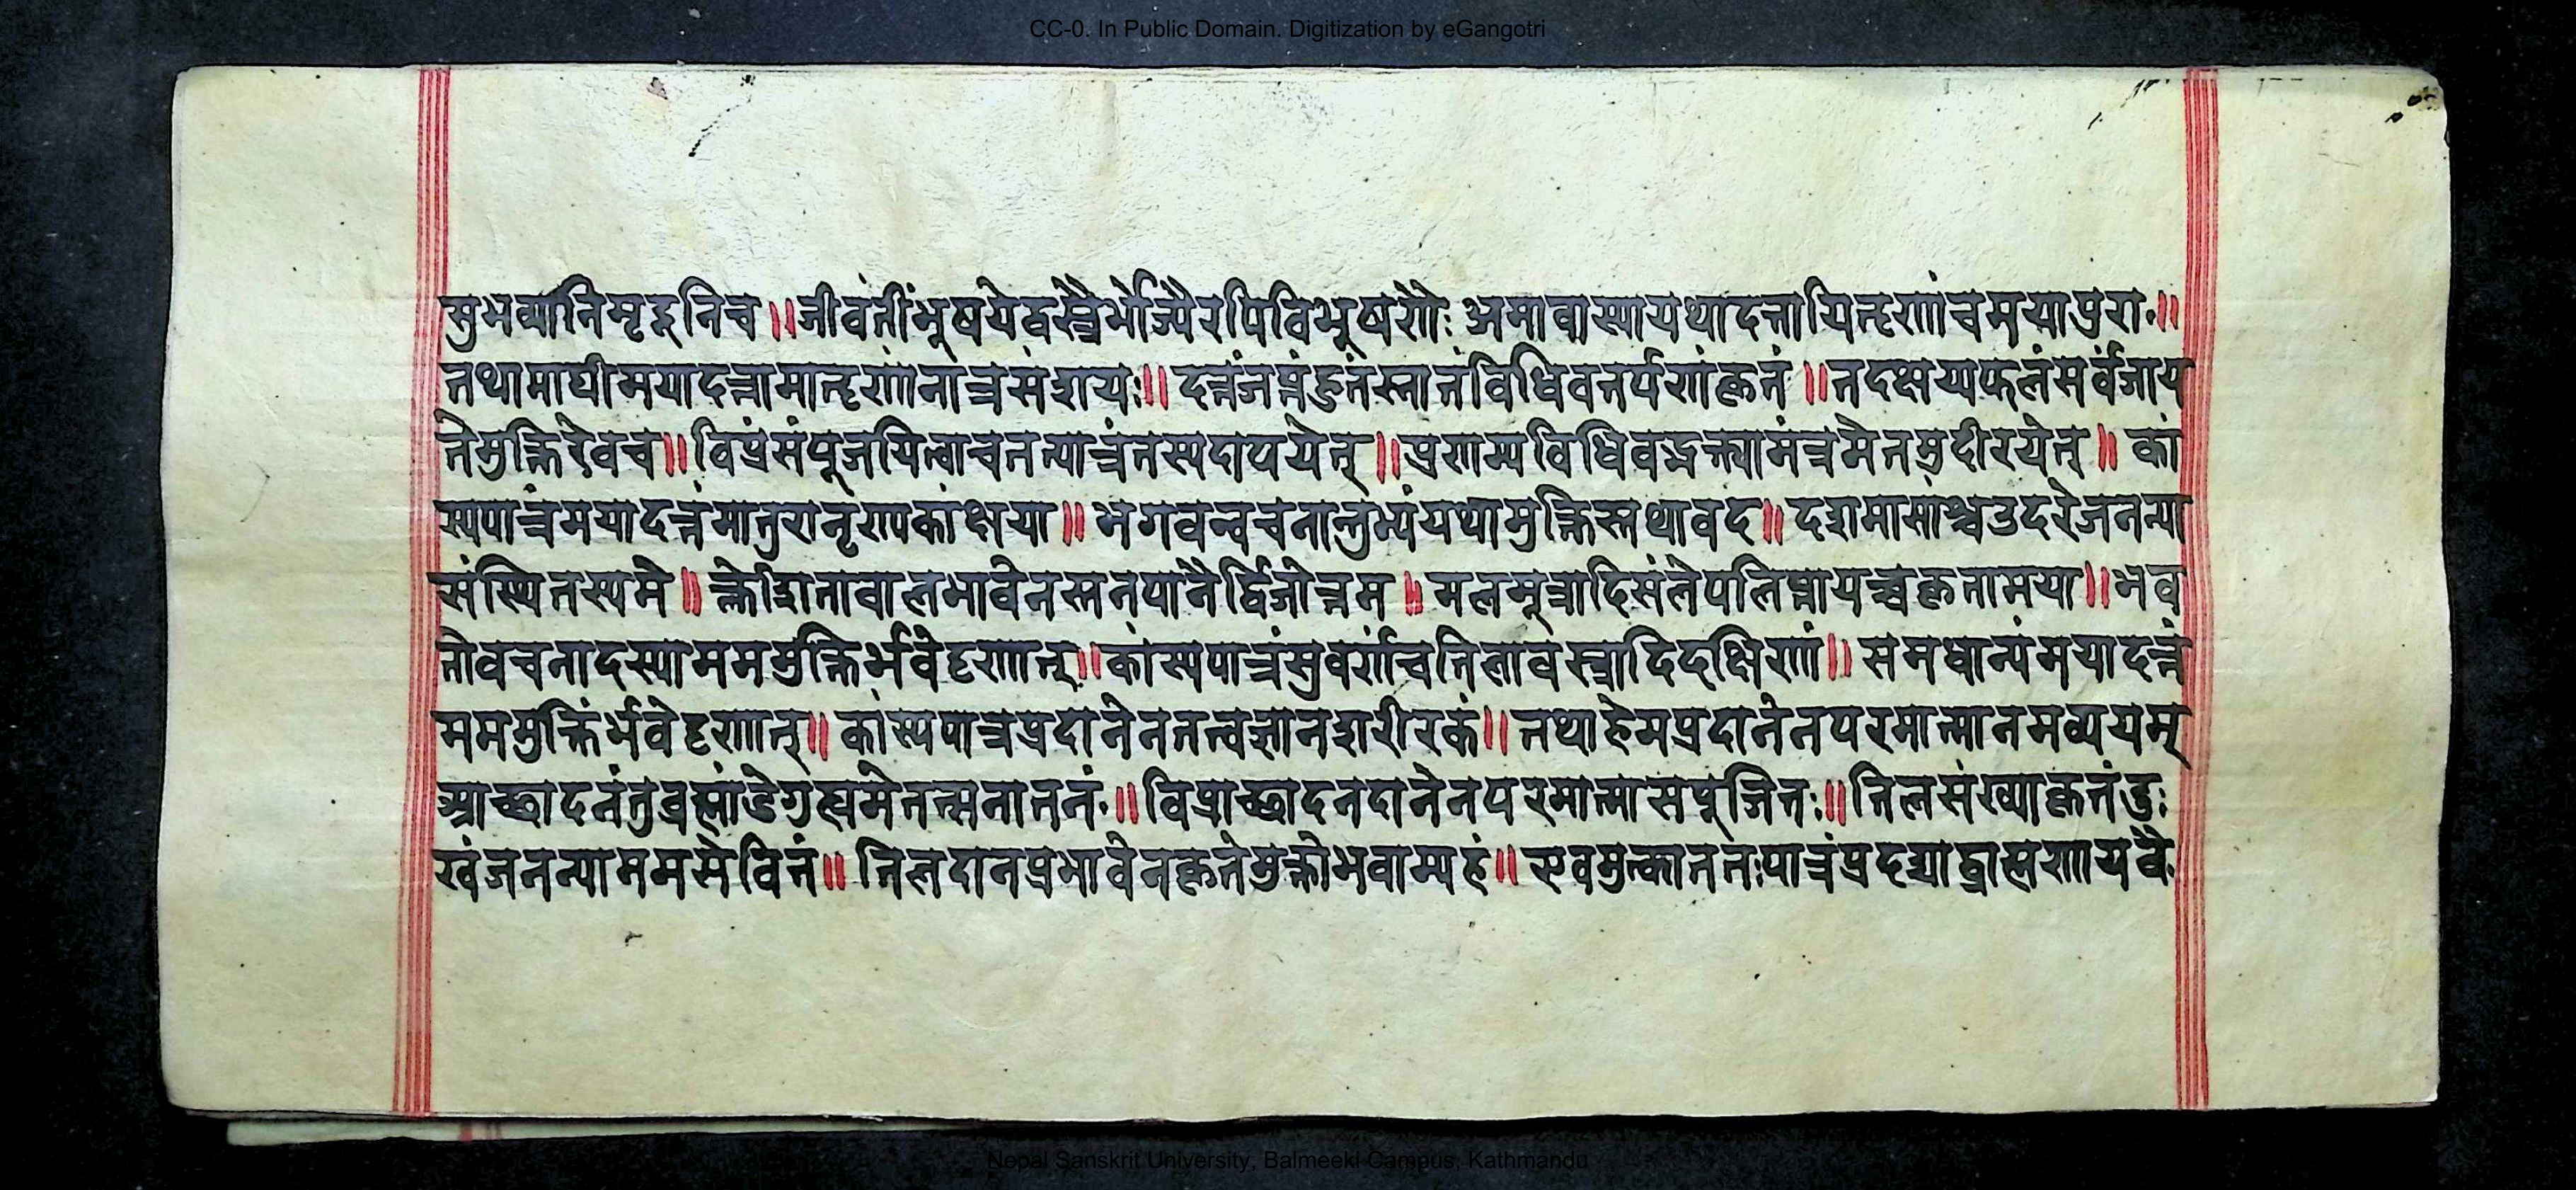 CC-0. In Public Domain. Digitization by eGangotri
सुभव्यानिमृदूनिच ॥ जीवंतींभुषयेद्वस्त्रैर्भोज्यैरपिविभुष्यणैः अमावास्यायथादत्तापितॄणांचमयापुरा ॥
तथामाघीमयादत्तामातॄणांनात्रसंशयः ॥ दत्तंजप्तंहुतंस्नानंविधिवतर्पणंकृतं ॥ तदक्षय्यफलंसर्वंजाय
तेमुक्तिरेवच ॥ विप्रंसंपूजयित्वाचतत्पात्रंतस्यदापयेत् ॥ प्रणम्यविधिवद्भक्त्यामंत्रमेतमुदीरयेत् ॥ कां
स्यपात्रंमयादत्तंमातुरानृणपकांक्षया ॥ भगवन्वचनात्तुभ्यंयथामुक्तिस्तथावद ॥ दशमासांश्चउदरेजनन्या
संस्थितस्यमे ॥ क्लेशितावालभावेनस्तनपानैर्द्विजोत्तम ॥ मलमूत्रादिसंलेपलिप्तायच्चकृतामया ॥ भव
तोवचनादस्याममर्मुक्तिर्भवेदृणात् ॥ कांस्यपात्रंसुवर्णंचतिलावस्त्रादिदक्षिणां ॥ सप्तधान्यंमयादत्तं
मममुक्तिंर्भवेदृणात् ॥ कांस्यपात्रप्रदानेनतत्त्वज्ञानशरीरकं ॥ तथाहेमप्रदानेनपरमात्मानमव्ययम्
आच्छादनंतुव्रह्मांडेगुह्यमेतत्सनातनं ॥ विप्राच्छादनदानेनपरमात्मासपूजितः ॥ तिलसंख्याकृतंदुः
खंजनन्याममसेवितं ॥ तिलदानप्रभावेनकृतेमुक्तोभवाम्यहं ॥ एवमुत्काततःपात्रंप्रदद्याद्ब्राह्मणायवै
Nepal Sanskrit University, Balmeeki Campus, Kathmandu